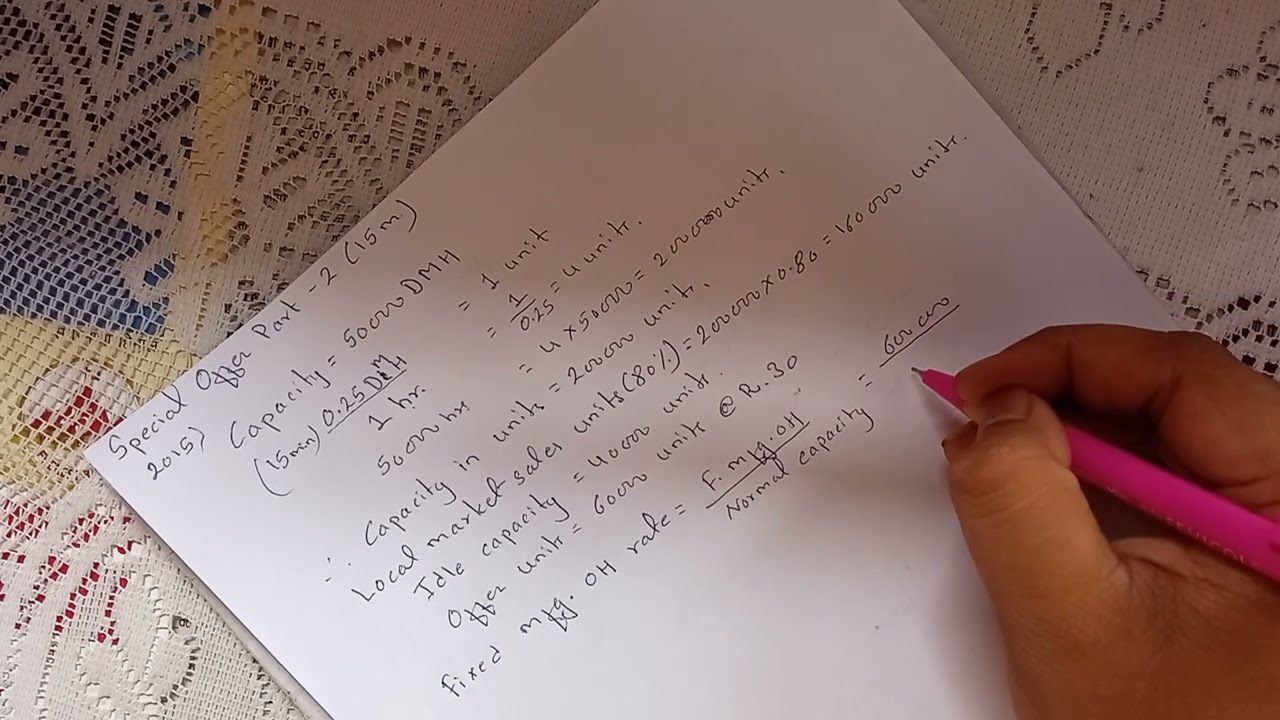 Special Offer Part - 2 (15m)
2015)
Capacity = 50000 DMH
(15min) 0.25 DMH = 1 unit
1 hr. = 1/0.25 = 4 units.
50000 hrs = 4 × 50000 = 200000 units.
∴ Capacity in units = 200000 units.
Local market sales units (80%) = 200000 × 0.80 = 160000 units.
Idle capacity = 40000 units.
Offer units = 60000 units @ R. 30
Fixed mfg. OH rate = F. mfg. OH / Normal capacity
= 600000